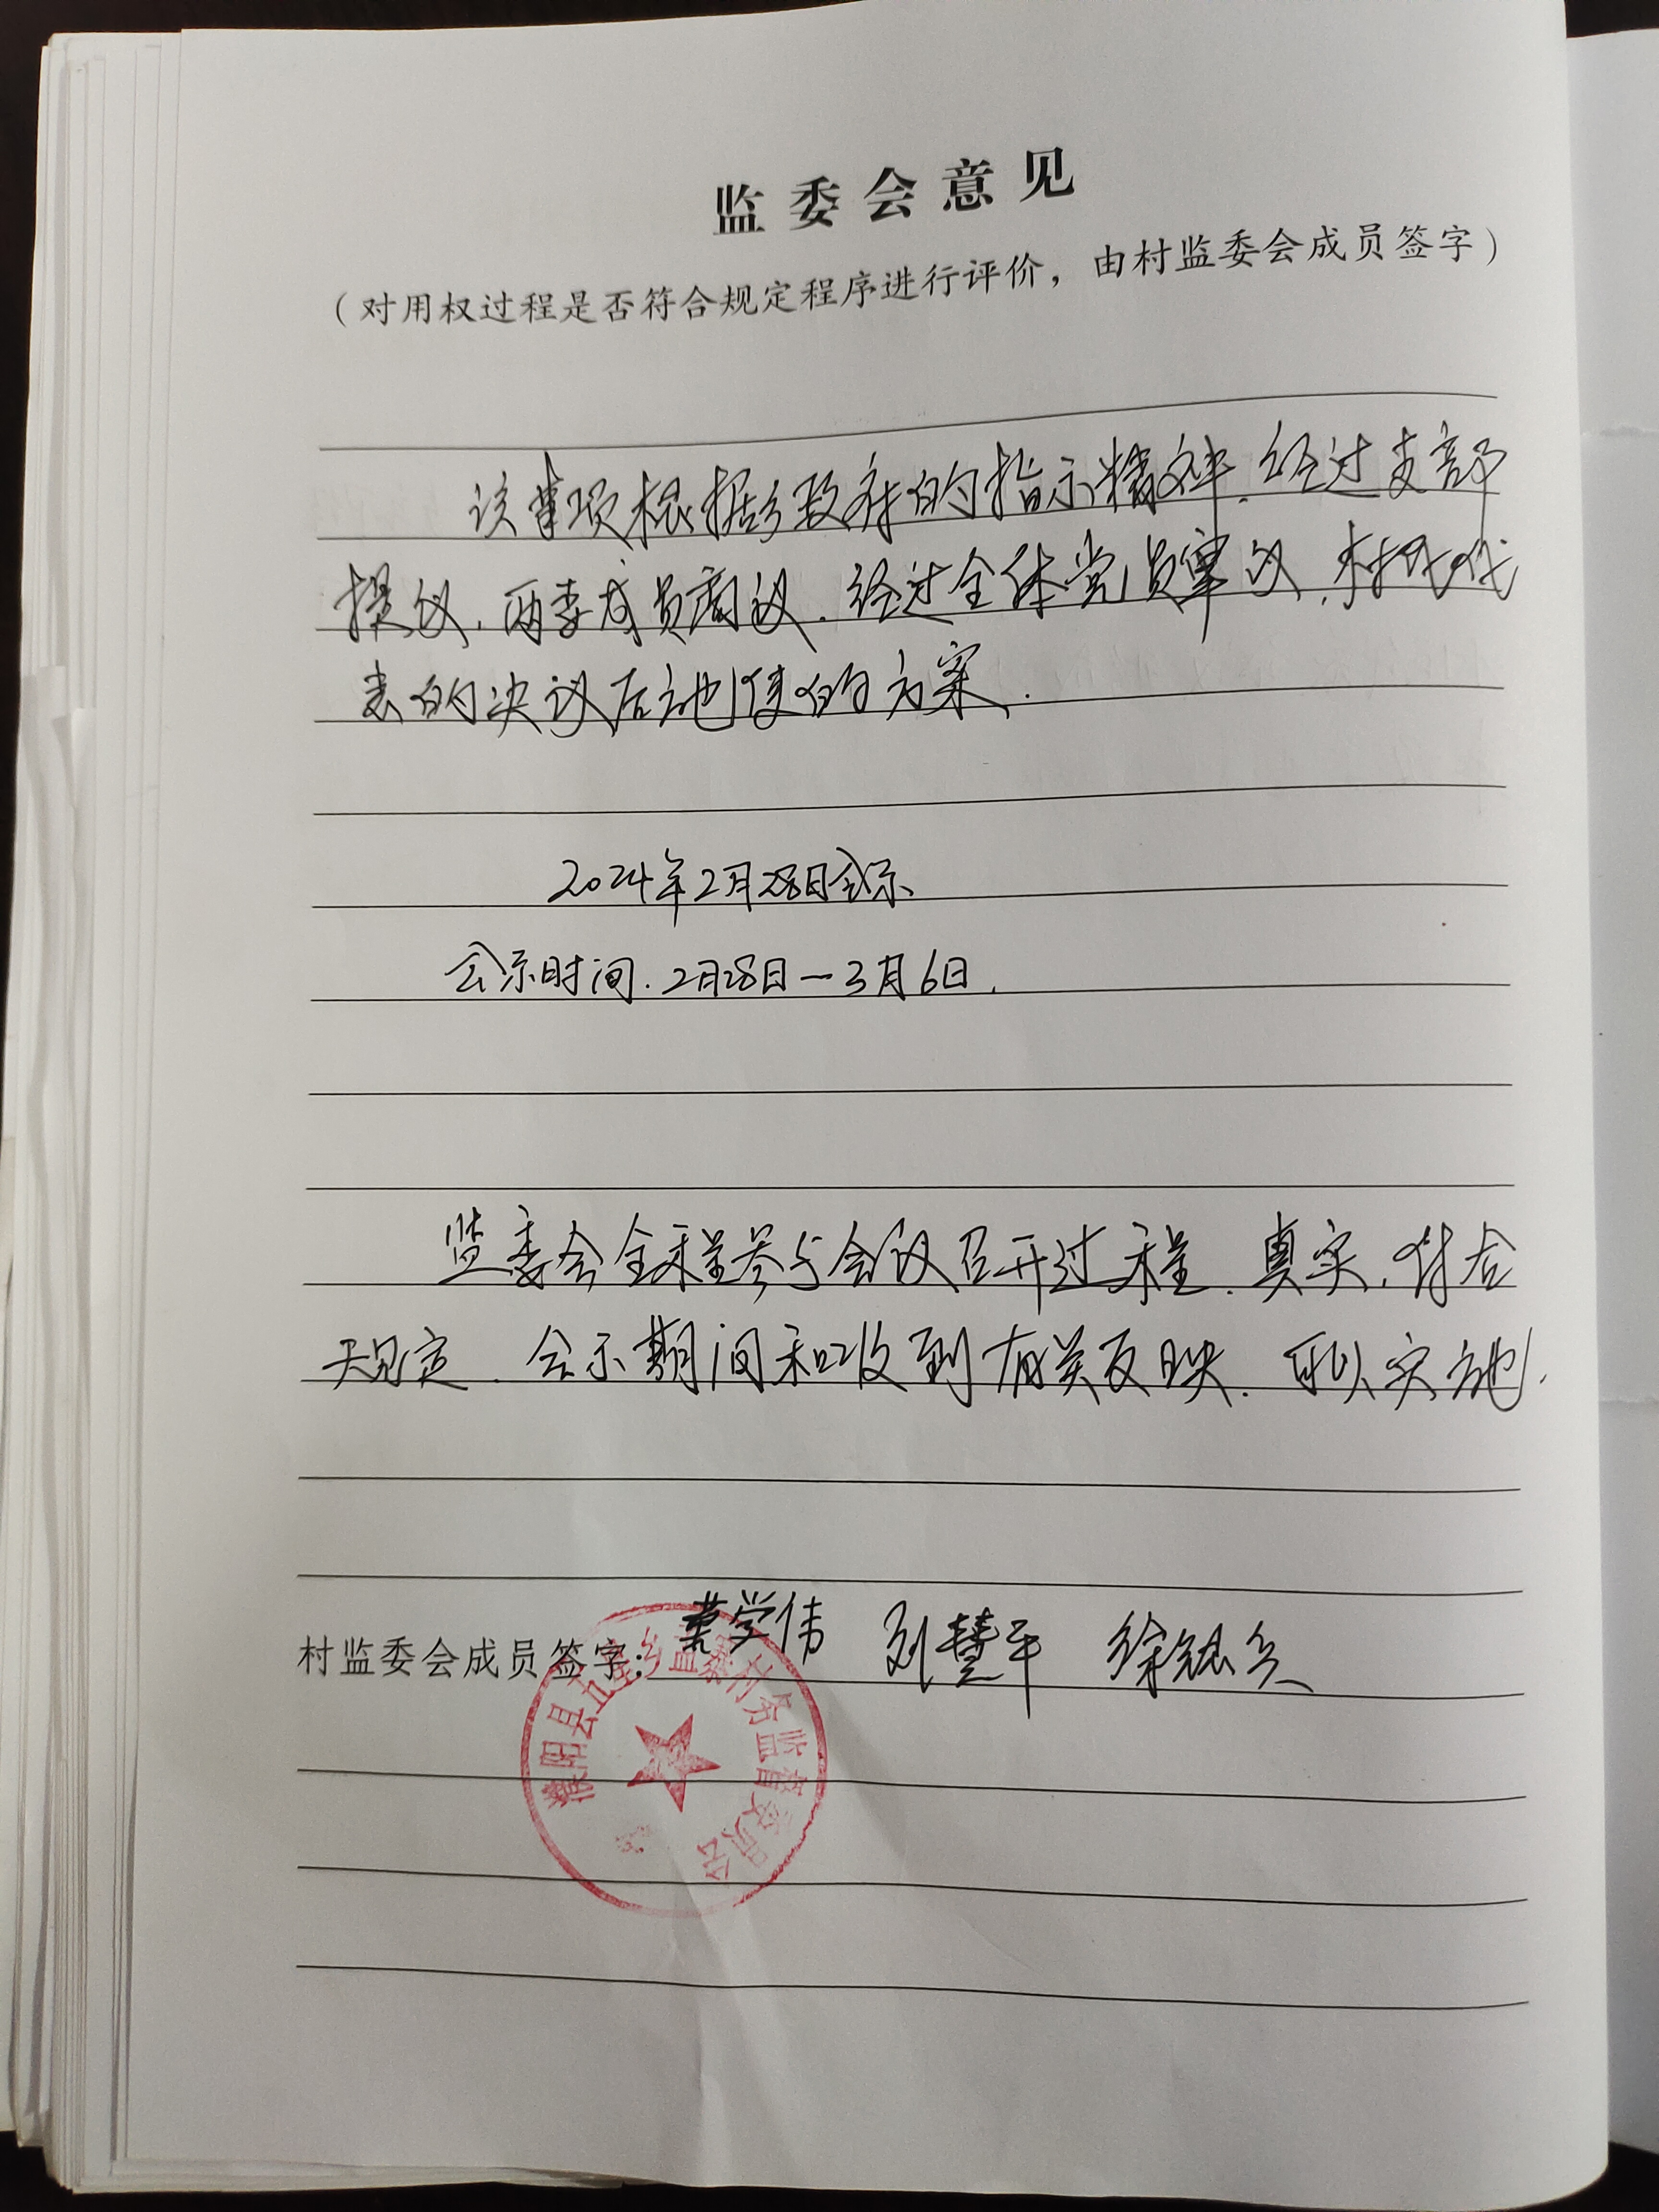 监委会意见
（对用权过程是否符合规定程序进行评价，由村监委会成员签字）
该事项根据乡政府的指示精神.经过支部
提议.两委成员商议.经过全体党员审议.村民代
表的决议后实施的方案.
2024年2月28日公示
公示时间.2月28日一3月6日.
监委会全程参与会议召开过程.真实.符合
规定.公示期间和收到有关反映.可以实施.
村监委会成员签字：学伟 刘慧平 徐
濮阳县五星乡 村务监督委员会